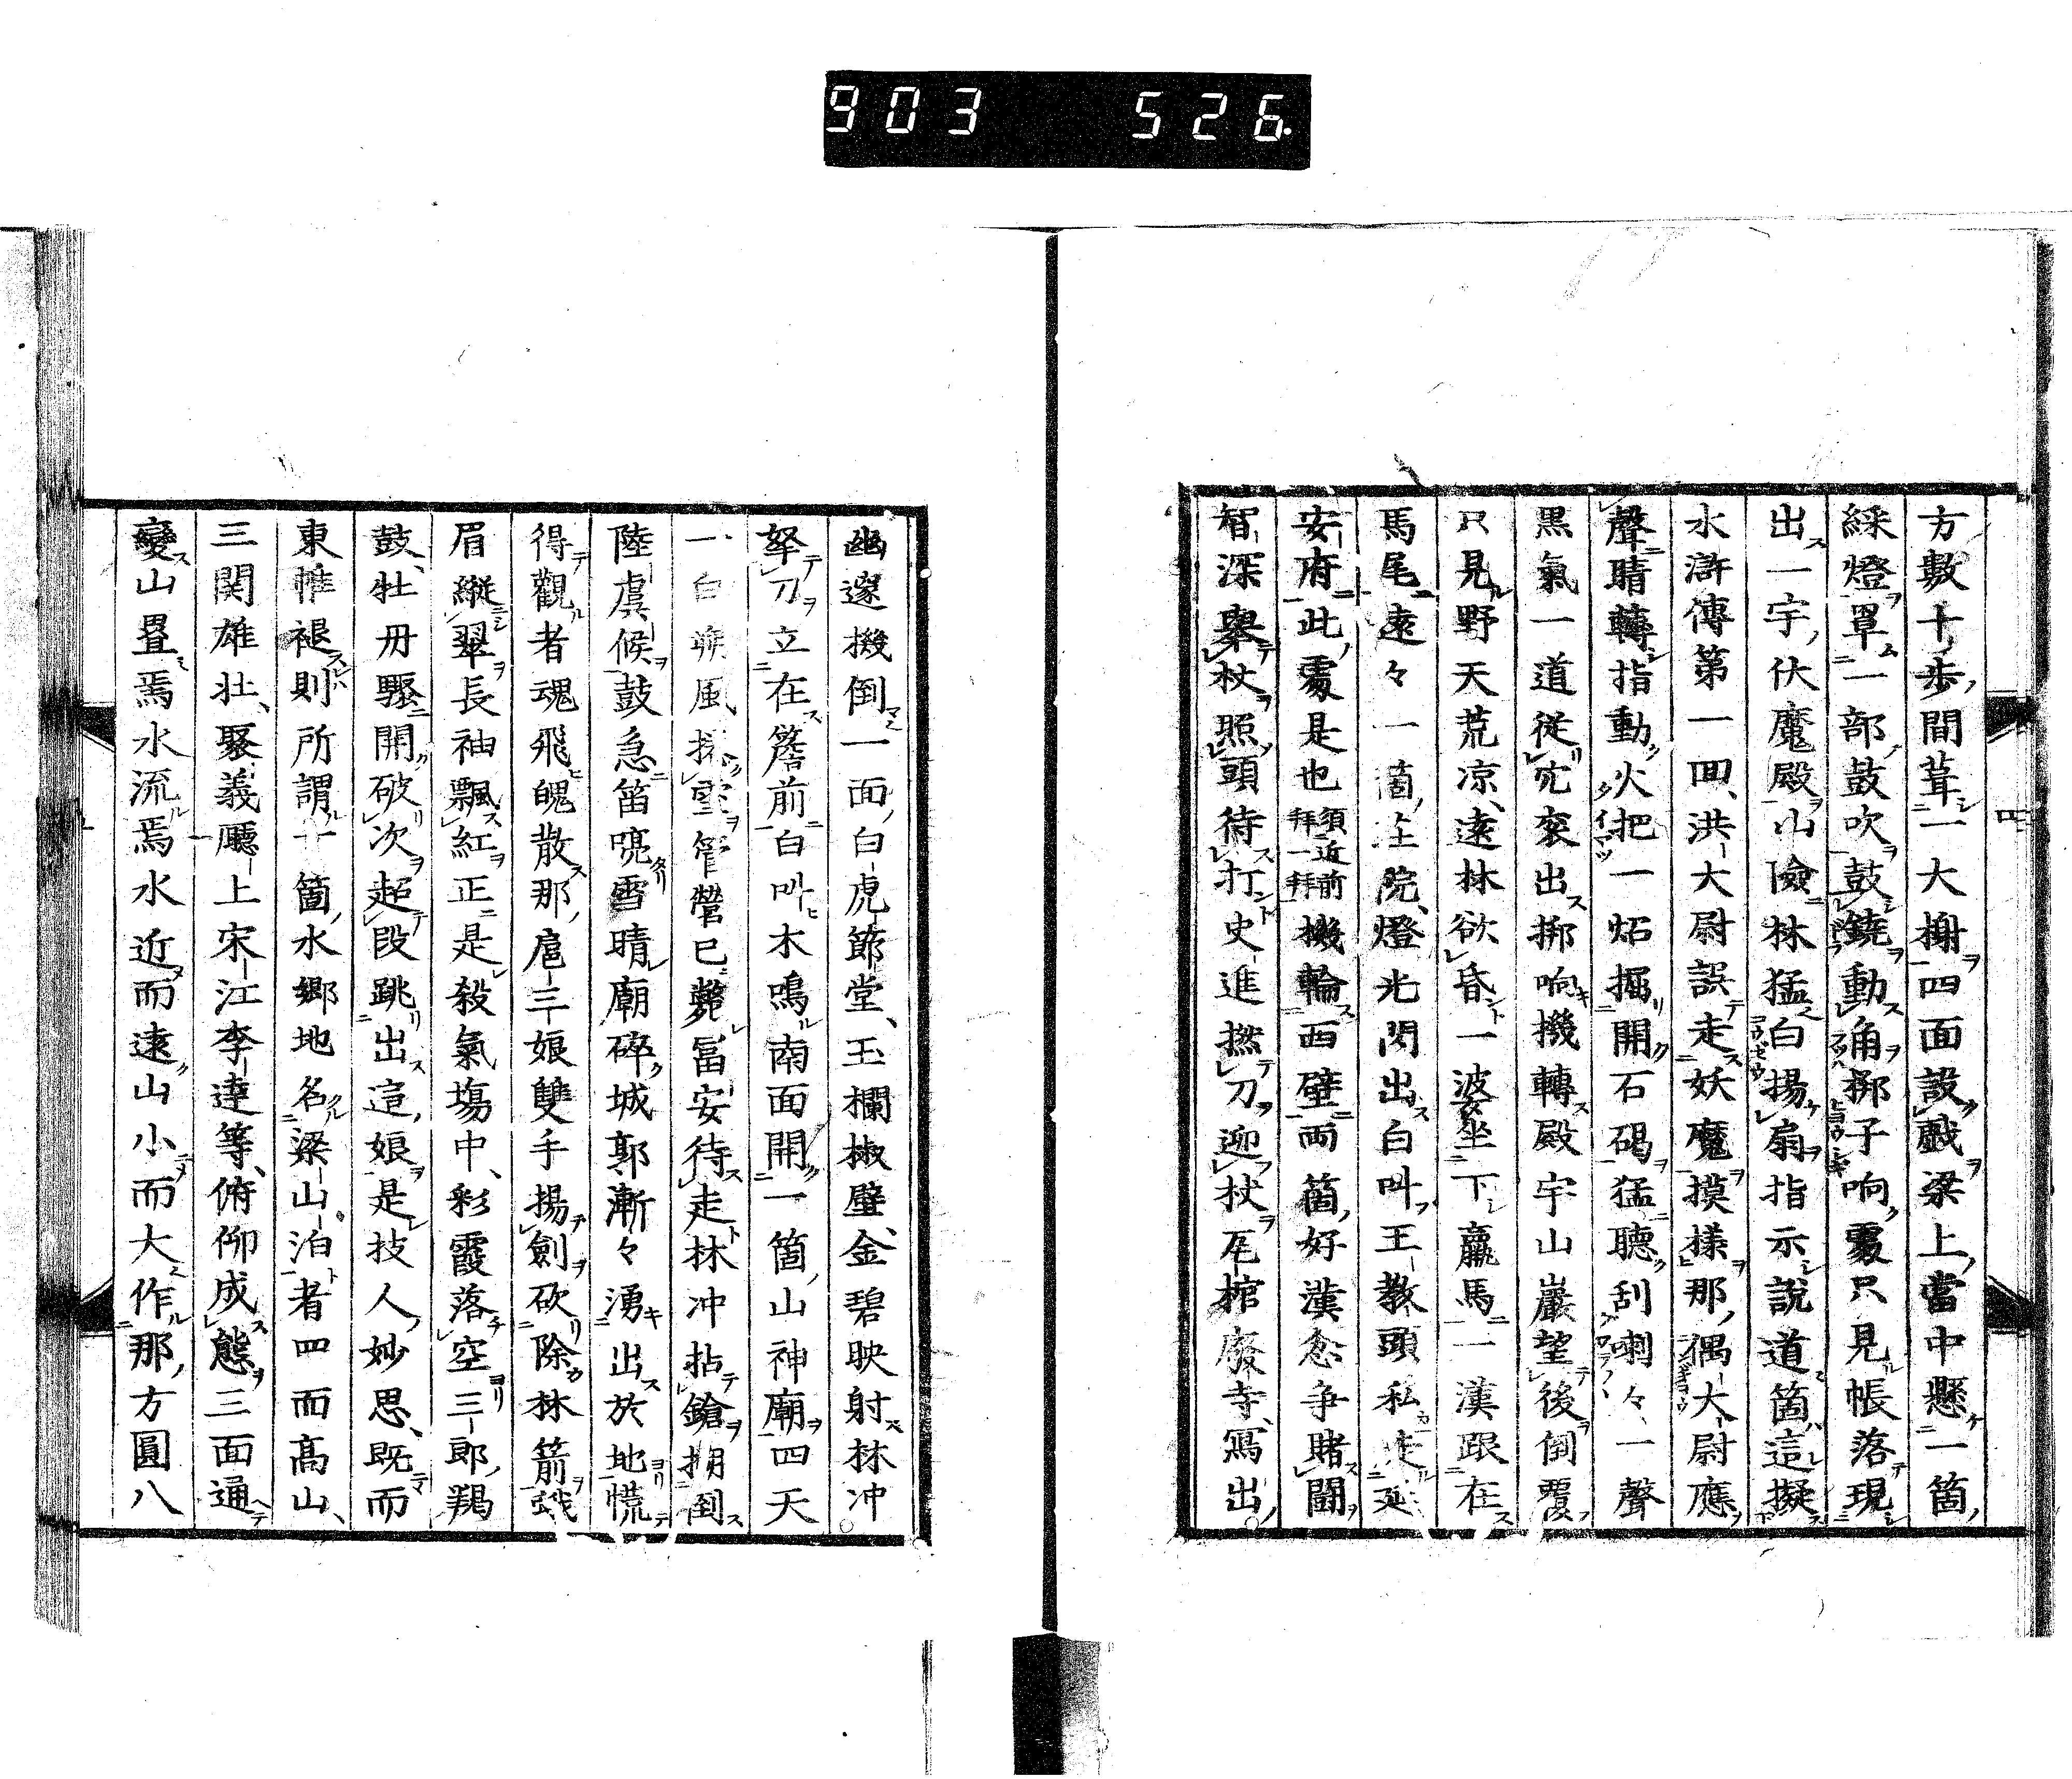 903 526
四
方數十歩間葺一大榭四面設戲梁上當中懸一箇
綵燈罩一部鼓吹鼓鐃動角梆子响處只見帳落現
出一宇伏魔殿山險林猛白揚扇指示說道箇這擬
水滸傳第一回洪大尉誤走妖魔摸樣那偶大尉應
聲睛轉指動火把一炻掘開石碣猛聽刮喇々一聲
黒氣一道從穴衮出梆响機轉殿宇山巖望後倒覆
只見野天荒凉遠林欲昏一婆坐下羸馬一漢跟在
馬尾遠々一箇庄院燈光閃出白叫王教頭私走延
安府此處是也須近前拜一拜機輪西壁兩箇好漢忿争賭鬪
智深舉杖照頭待打史進撚刀迎杖瓦棺廢寺寫出
幽邃機倒一面白虎節堂玉欄椒壁金碧映射林冲
拏刀立在簷前白叫木鳴南面開一箇山神廟四天
一白 風 雪管營已斃冨安待走林冲拈鎗搠倒
陸虞候鼓急笛喨雪晴廟碎城郭漸々湧出於地慌
得觀者魂飛魄散那扈三娘雙手揚劍砍除林箭
眉縱翠長袖飄紅正是殺氣塲中彩霞落空三郎羯
鼓牡丹驟開破次超段跳出這娘是技人妙思既而
東帷褪則所謂一箇水郷地名梁山泊者四而高山
三関雄壮聚義廳上宋江李逵等俯仰成態三面通
變山疊焉水流焉水近而遠山小而大作那方圓八